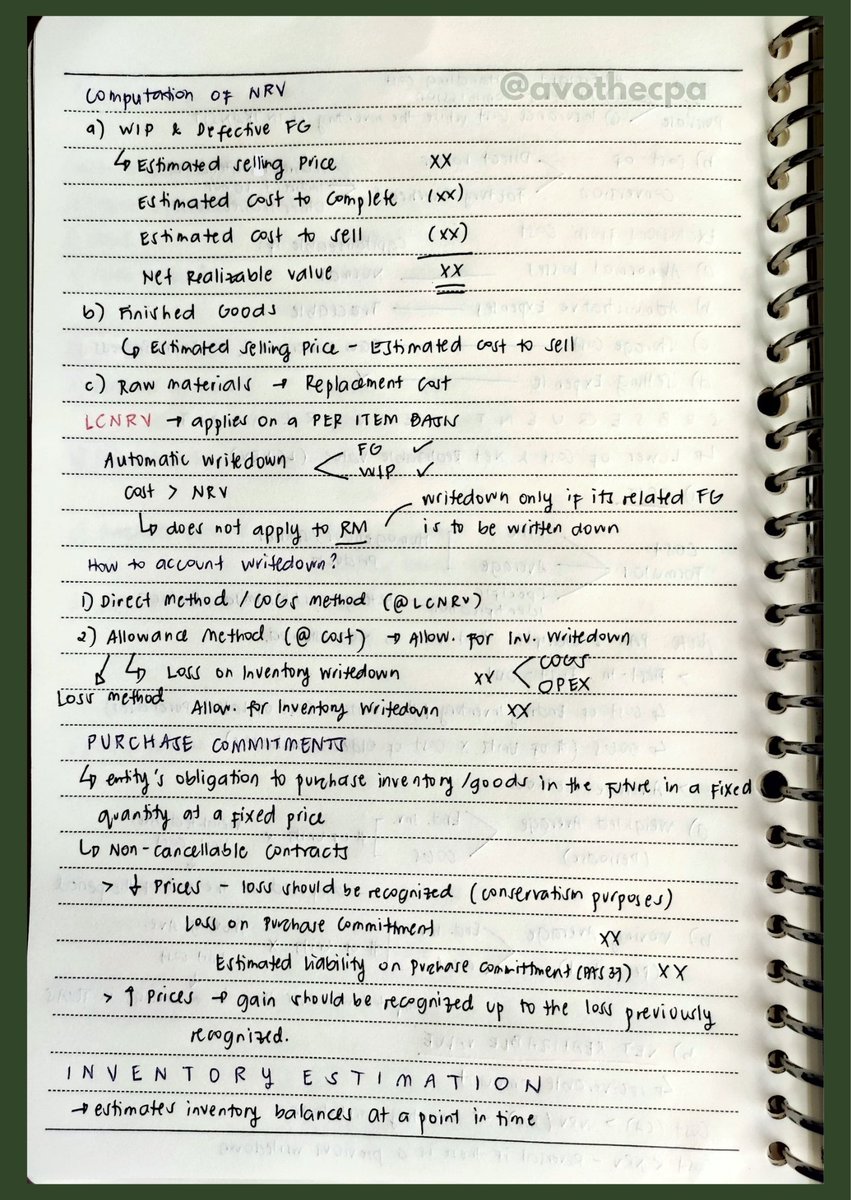 @avothecpa
Computation of NRV
a) WIP & Defective FG
↳ Estimated selling Price XX
Estimated Cost to Complete (XX)
Estimated Cost to sell (XX)
Net Realizable value XX
b) Finished Goods
↳ Estimated selling Price - Estimated cost to sell
c) Raw materials → Replacement Cost
LCNRV → applies on a PER ITEM BASIS
Automatic writedown < FG ✓
WIP ✓
Cost > NRV
writedown only if its related FG
↳ does not apply to RM is to be written down
How to account writedown?
1) Direct method / COGS method (@LCNRV)
2) Allowance Method (@ cost) → Allow. for Inv. Writedown
↳ Loss on Inventory Writedown XX < COGS
OPEX
Loss method Allow. for Inventory Writedown XX
PURCHASE COMMITMENTS
↳ entity's obligation to purchase inventory/goods in the future in a fixed
quantity at a fixed price
↳ Non-cancellable contracts
> ↓ Prices - loss should be recognized (conservatism purposes)
Loss on Purchase Commitment XX
Estimated Liability on Purchase Committment (PAS 37) XX
> ↑ Prices → gain should be recognized up to the loss previously
recognized.
INVENTORY ESTIMATION
→ estimates inventory balances at a point in time